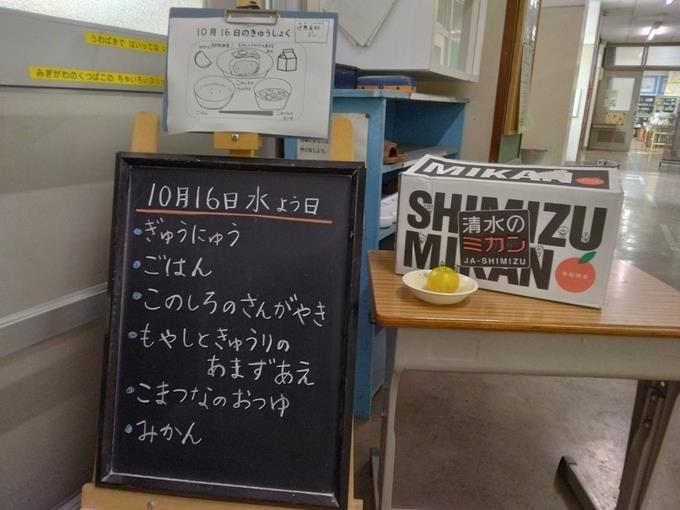 うわばきで はいっては
みぎがわのくつばこの ちゃいろいス
10月16日のきゅうしょく
ごはん
10月16日 水よう日
ぎゅうにゅう
ごはん
このしろのさんがやき
もやしときゅうりの
あまずあえ
こまつなのおつゆ
みかん
MIKAN
SHIMIZU
MIKAN
清水の
ミカン
JA-SHIMIZU